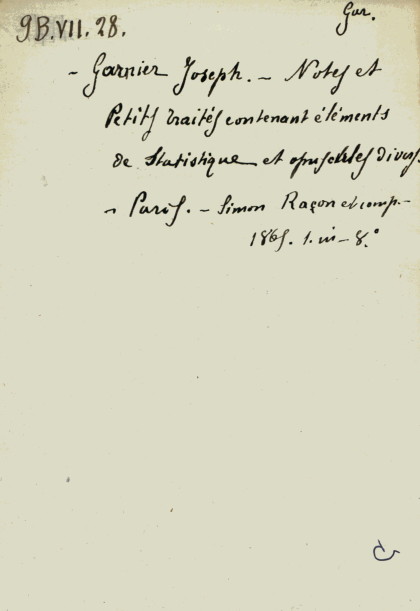 Gar.
9B.VII.28.
- Garnier Joseph. - Notes et
Petits traités contenant éléments
de Statistique et opuscules divers.
- Paris. - Simon Raçon et comp. -
1865. 1. in-8.°